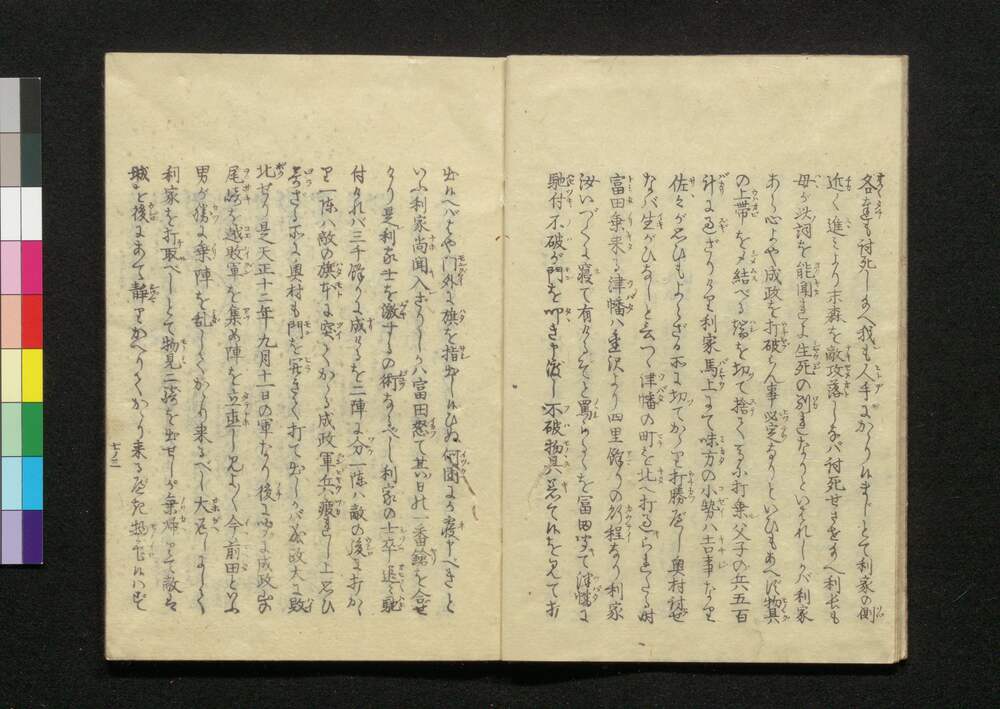 各達も討死し給へ我も人手にかゝれましとて利家の側
近く進みより末森を敵攻落しなバ討死せさせ給へ利長も
母が此詞を能聞きよ生死の別れなりといはれしかバ利家
あら心よや成政を打破らん事必定なりといひもあへず物具
の上帯を〆結べる端を切て捨てくるみ打乗父子の兵五百
計に過ぎざりけり利家馬上にて味方の小勢ハ吉事なり
佐々が思ひもよらざる所に切てかゝり打勝べし奥村討せ
なバ生がひなしと云つゝ津幡の町を北へ打通られける時
富田乗来る津幡ハ金沢より四里餘りの行程なり利家
汝いづくに寝て有けるぞと罵らるゝを富田聞て津幡に
馳付不破が門を叩き申渡し不破物具忘てんを見てお
出んへバはや門外に旗を指出しんひぬ何国にか寝申べきと
いふ利家尚聞入ざりしかハ富田怒て其日の一番鎗を合せ
けり是利家士を激するの術なるべし利家の士卒追々馳
付けれバ三千餘りに成けるを二陣に分一陣ハ敵の後に打かく
り一陣ハ敵の旗本に突かゝる成政軍兵疲れし上思ひ
よらざる所に奥村も門を開きて打て出しかバ成政大に敗
北せり是天正十二年九月十一日の軍なり後に聞ば成政山の
尾崎を越敗軍を集め陣を立直し見よ〱今前田といふ
男が勝に乗陣を乱してかゝり来るべし大返しにして
利家を打取べしとて物見二騎を出せしが乗帰りて敵は
城を後にあて静りかへりてかゝり来る
七ノ三